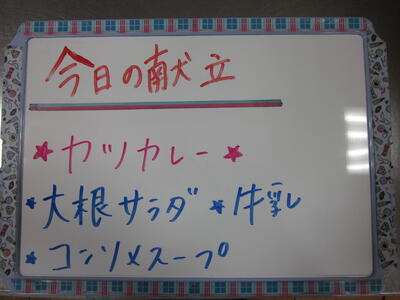 今日の献立
★カツカレー★
★大根サラダ ★牛乳
★コンソメスープ